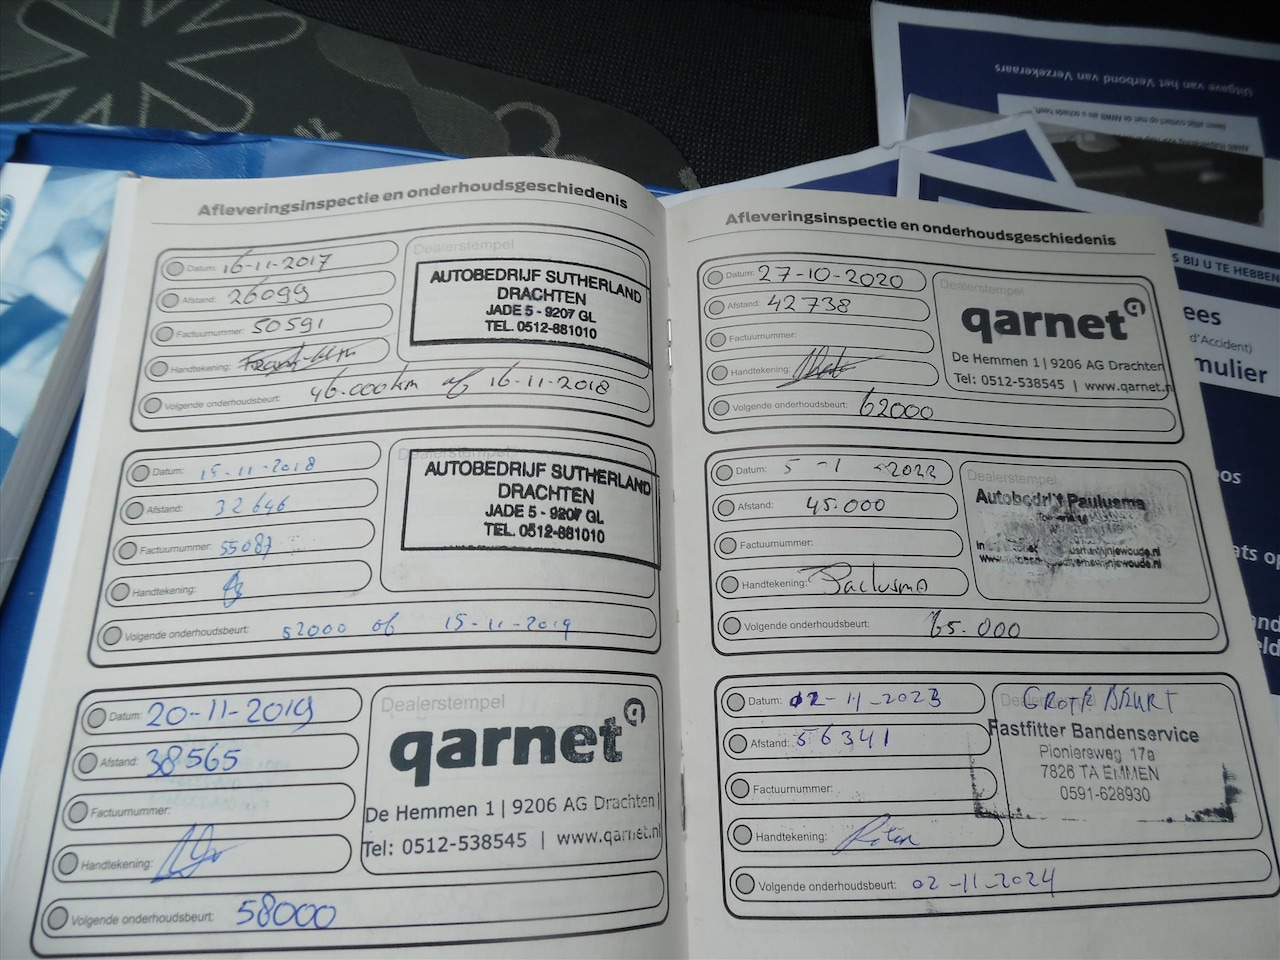 Uitgave van het Verbond van Verzekeraars
Afleveringsinspectie en onderhoudsgeschiedenis
Datum: 16-11-2017
Afstand: 26099
Factuurnummer: 50591
Handtekening:
Volgende onderhoudsbeurt: 46.000km of 16-11-2018
Dealerstempel
AUTOBEDRIJF SUTHERLAND
DRACHTEN
JADE 5 - 9207 GL
TEL. 0512-881010
Datum: 15-11-2018
Afstand: 32646
Factuurnummer: 55087
Handtekening:
Volgende onderhoudsbeurt: 52000 of 15-11-2019
Dealerstempel
AUTOBEDRIJF SUTHERLAND
DRACHTEN
JADE 5 - 9207 GL
TEL. 0512-881010
Datum: 20-11-2019
Afstand: 38565
Factuurnummer:
Handtekening:
Volgende onderhoudsbeurt: 58000
Dealerstempel
qarnet
De Hemmen 1 | 9206 AG Drachten |
Tel: 0512-538545 | www.qarnet.nl
Afleveringsinspectie en onderhoudsgeschiedenis
Datum: 27-10-2020
Afstand: 42738
Factuurnummer:
Handtekening:
Volgende onderhoudsbeurt: 62000
Dealerstempel
qarnet
De Hemmen 1 | 9206 AG Drachten
Tel: 0512-538545 | www.qarnet.n
Datum: 5-1-2022
Afstand: 45.000
Factuurnummer:
Handtekening: Paulusma
Volgende onderhoudsbeurt: 65.000
Dealerstempel
Autobedrijf Paulusma
Datum: 02-11-2023
Afstand: 56341
Factuurnummer:
Handtekening:
Volgende onderhoudsbeurt: 02-11-2024
GROTE BEURT
Fastfitter Bandenservice
Pioniersweg 17a
7826 TA EMMEN
0591-628930
S BIJ U TE HEBBEN
ees
d'Accident)
mulier